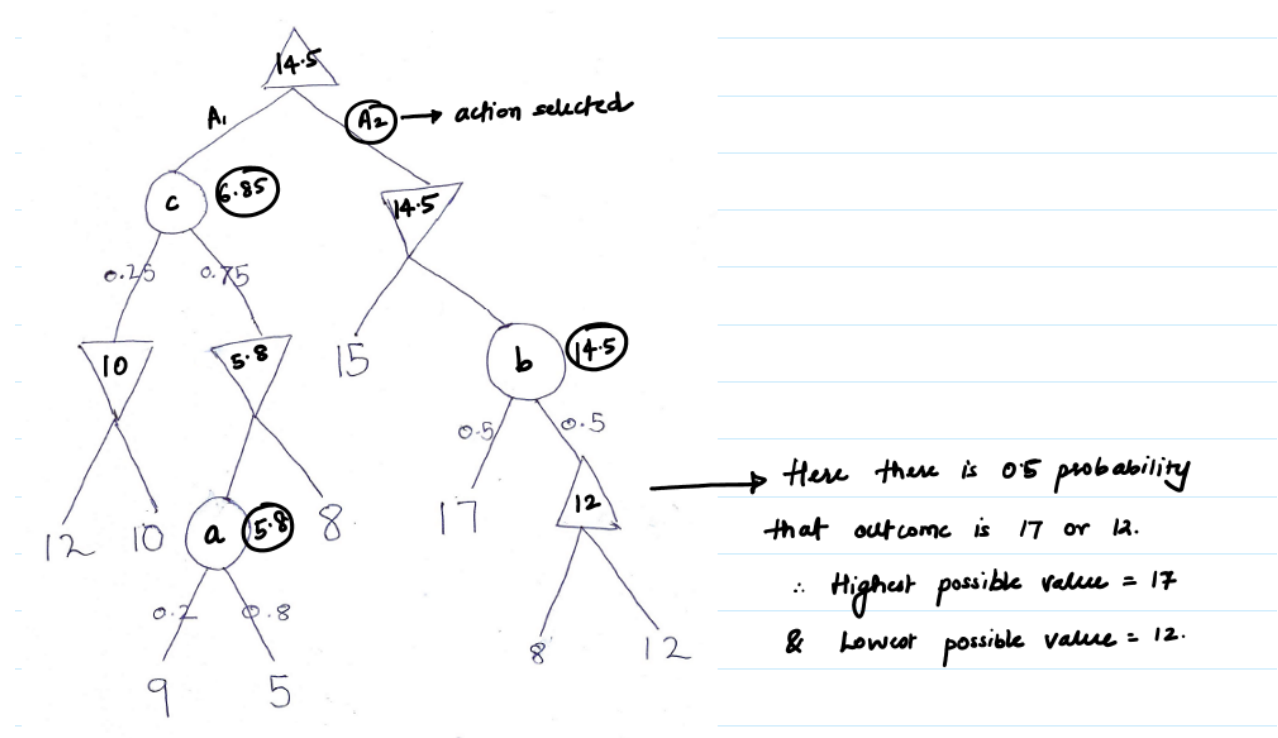 14.5
A1
A2 → action selected
c
6.85
14.5
0.25
0.75
10
5.8
15
b
14.5
0.5
0.5
12
10
a
5.8
8
17
12
0.2
0.8
8
12
9
5
→ Here there is 0.5 probability
that outcome is 17 or 12.
∴ Highest possible value = 17
& Lowest possible value = 12.